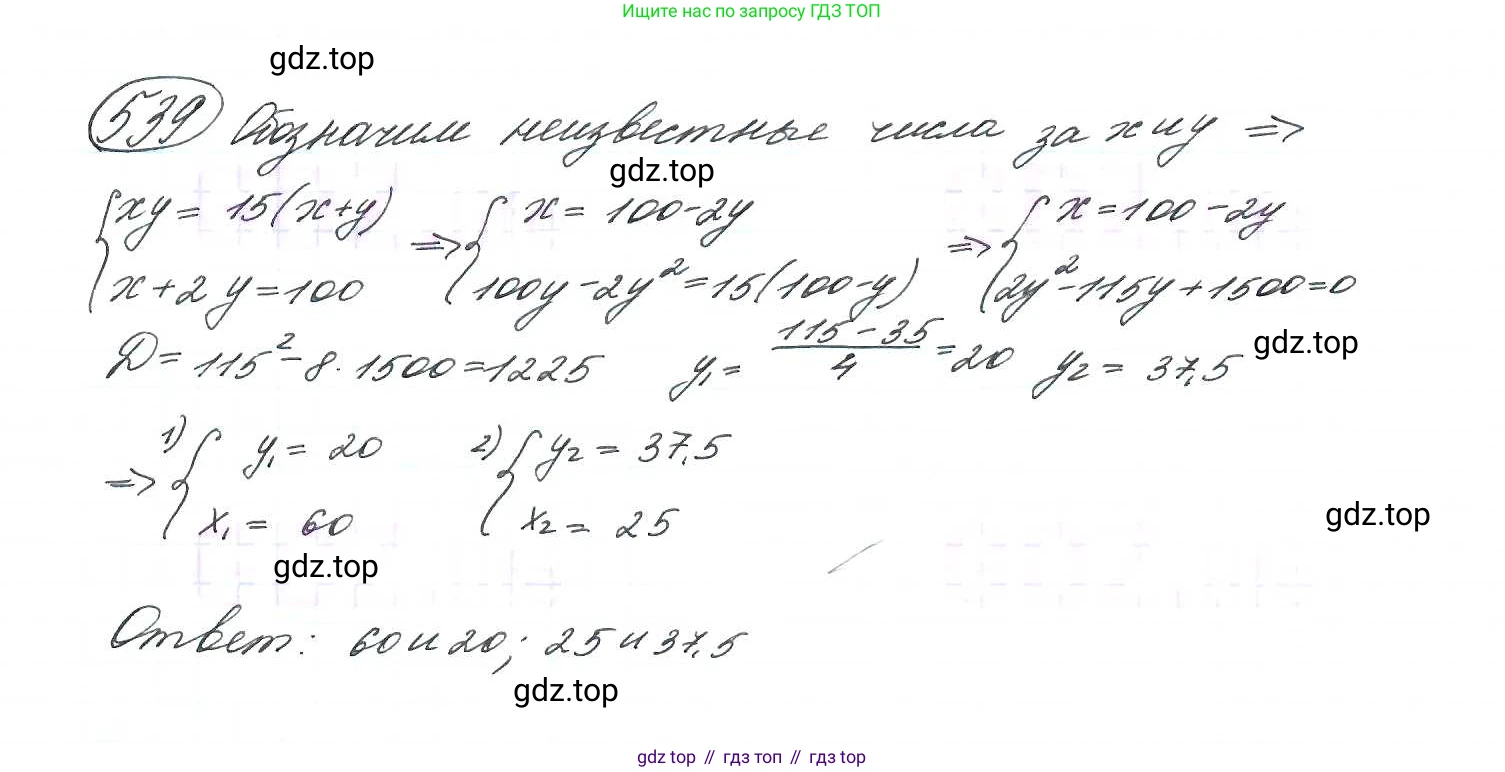 Ищите нас по запросу ГДЗ ТОП
gdz.top
539 Обозначим неизвестные числа за x и y =>
gdz.top
{ xy = 15(x+y) => { x = 100-2y => { x = 100-2y
x + 2y = 100 100y - 2y² = 15(100-y) 2y² - 115y + 1500 = 0
D = 115² - 8·1500 = 1225 y₁ = (115-35)/4 = 20 y₂ = 37,5
gdz.top
=> 1) { y₁ = 20 2) { y₂ = 37,5
x₁ = 60 x₂ = 25
gdz.top
gdz.top
Ответ: 60 и 20; 25 и 37,5
gdz.top
gdz top // гдз топ // гдз top